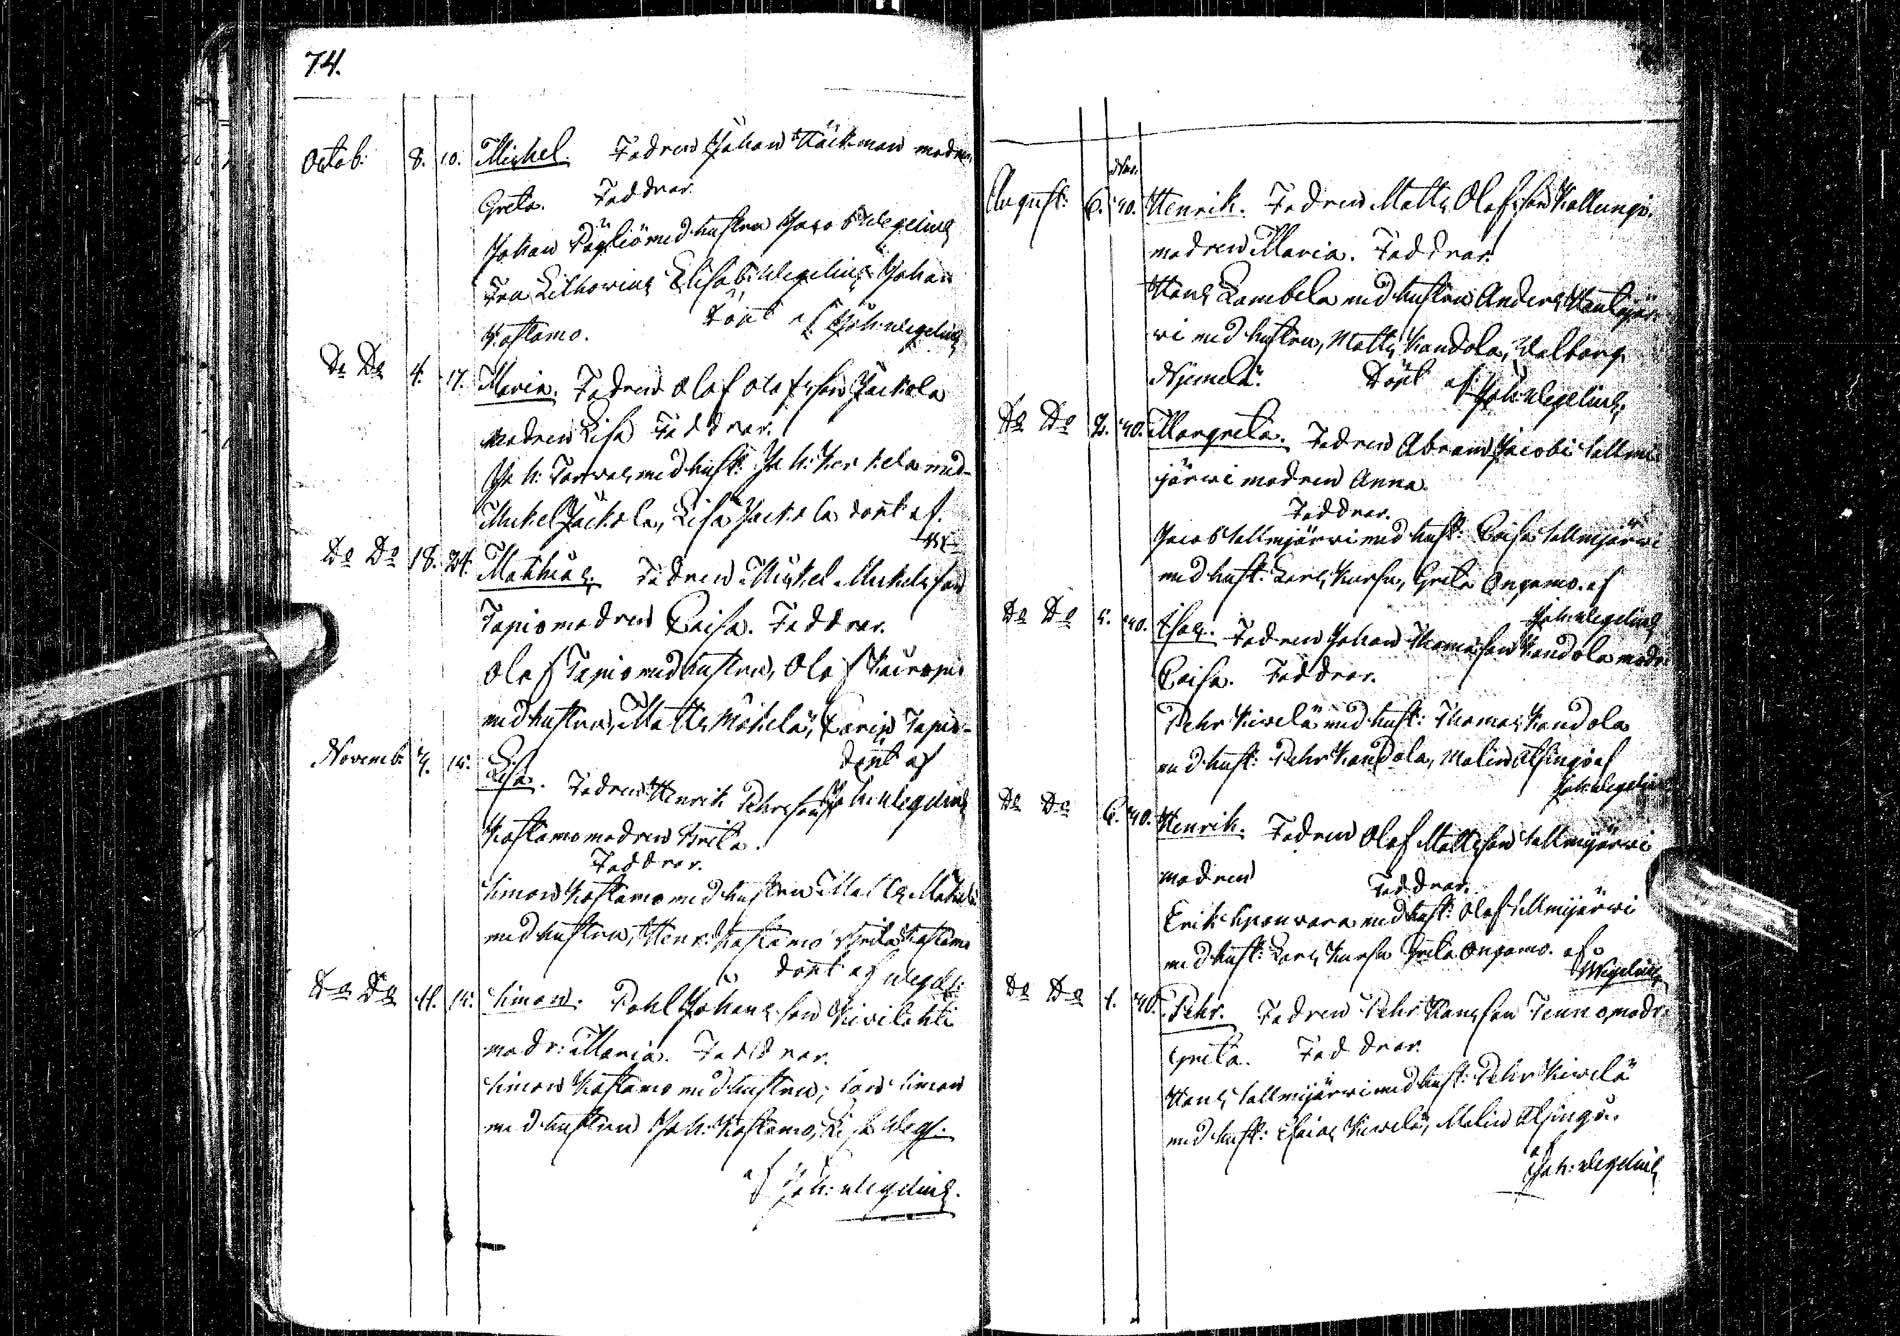 74.
Octob: 8. 10. Michel. Fadren Johan Häckman modren
Greta. Faddrar.
Johan med hustru Jacob Wegelius
Fru Lithovius Elisab: Wegelius Johan
Kostamo. Döpt af Joh: Wegelius
Do Do 4. 17. Maria. Fadren Olof Olofsson Jäckola
modren Lisa Faddrar.
Joh: med hust: Joh: med
Mickel Jäckola, Lisa Jäckola döpt af.
Do Do 18. 24. Mathias. Fadren Mickel Mickelsson
Tapio modren Caisa. Faddrar.
Olof Tapio med hustru, Olof
med hustru, Matts Mäkelä, Carin Tapio
döpt af
Novemb. 4. 15. Lisa. Fadren Henrik Pehrsson Joh: Wegelius
Kostamo modren Brita
Faddrar.
Simon Kostamo med hustru Matts Mäkelä
med hustru, Henr: Kostamo Brita Kostamo
döpt af Wegel:
Do Do 11. 15. Simon. Pohl Johansson Kivilahti
modr: Maria. Faddrar.
Simon Kostamo med hustru, Lars Simon
med hustru Joh: Kostamo, Lisa Weg.
af Joh: Wegelius.
August: 6. 40. Henrik. Fadren Matts Olofsson Kallungi.
modren Maria. Faddrar.
Hans Lambela med hustru Anders Hantajär
wi med hustru, Matts Kandola, Walborg
Niemelä. Döpt af Joh: Wegelius.
Do Do 2. 40. Margreta. Fadren Abram Jacobi Sallmi
järwi modren Anna.
Faddrar.
Jacob Sallmijärwi med hust: Caisa Sallmijärwi
med hust: Lars Kursu, Greta Ongamo. af
Joh: Wegelius
Do Do 5. 40. Esai. Fadren Johan Thomasson Kandola modr:
Caisa. Faddrar.
Pehr Kivelä med hust: Thomas Kandola
med hust: Pehr Kandola, Malin Alsingö af
Joh: Wegelius
Do Do 6. 40. Henrik. Fadren Olof Mattsson Sallmijärwi
modren Faddrar.
Erik med hust: Olof Sallmijärwi
med hust: Lars Kursu Greta Ongamo. af
Wegelius
Do Do 1. 40. Pehr. Fadren Pehr Hansson Tennio, modr:
Greta. Faddrar.
Hans Sallmijärwi med hust: Pehr Kivelä
med hust: Esaias Kivelä, Malin Alsingö.
af
Joh: Wegelius